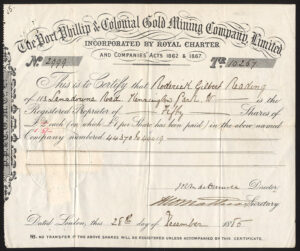 The Port Phillip & Colonial Gold Mining Company, Limited.
INCORPORATED BY ROYAL CHARTER
AND COMPANIES ACTS 1862 & 1867.
No 2999
This is to Certify that Roderick Gilbert Reading
of Lansdowne Road Kensington Park W is the
Registered Proprietor of Fifty Shares of
£ each (on which £1 per Share has been paid) in the above named
Company numbered to
Director
Secretary
Dated London, this 28th day of December 1885
NO TRANSFER OF THE ABOVE SHARES WILL BE REGISTERED UNLESS ACCOMPANIED BY THIS CERTIFICATE.